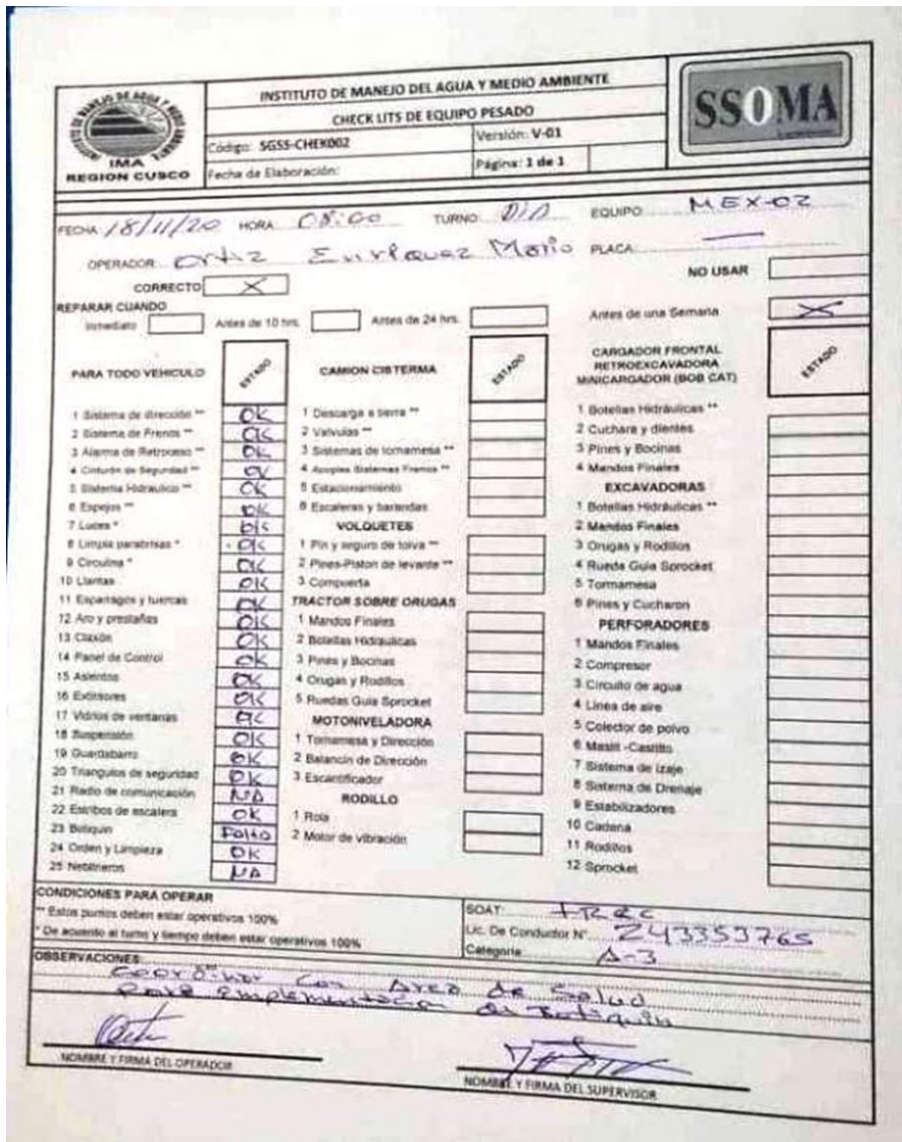 INSTITUTO DE MANEJO DE AGUA Y MEDIO AMBIENTE
IMA
REGION CUSCO
INSTITUTO DE MANEJO DEL AGUA Y MEDIO AMBIENTE
CHECK LITS DE EQUIPO PESADO
Código: SGSS-CHEK002 Versión: V-01
Fecha de Elaboración: Página: 1 de 1
SSOMA
FECHA 18/11/20 HORA 08:00 TURNO DIA EQUIPO MEX-02
OPERADOR Ortiz Enriquez Mario PLACA —
CORRECTO X NO USAR
REPARAR CUANDO
Inmediato Antes de 10 hrs. Antes de 24 hrs. Antes de una Semana X
PARA TODO VEHICULO ESTADO
1 Sistema de dirección ** OK
2 Sistema de Frenos ** OK
3 Alarma de Retroceso ** OK
4 Cinturón de Seguridad ** OK
5 Sistema Hidraulico ** OK
6 Espejos ** OK
7 Luces * OK
8 Limpia parabrisas * OK
9 Circulina * OK
10 Llantas OK
11 Esparragos y tuercas OK
12 Aro y prestañas OK
13 Claxón OK
14 Panel de Control OK
15 Asientos OK
16 Extintores OK
17 Vidrios de ventanas OK
18 Suspensión OK
19 Guardabarro OK
20 Triangulos de seguridad OK
21 Radio de comunicación NA
22 Estribos de escalera OK
23 Botiquin Falta
24 Orden y Limpieza OK
25 Neblineros NA
CAMION CISTERMA ESTADO
1 Descarga a tierra **
2 Valvulas **
3 Sistemas de tornamesa **
4 Acoples Sistemas Frenos **
5 Estacionamiento
6 Escaleras y barandas
VOLQUETES
1 Pin y seguro de tolva **
2 Pines-Piston de levante **
3 Compuerta
TRACTOR SOBRE ORUGAS
1 Mandos Finales
2 Botellas Hidraulicas
3 Pines y Bocinas
4 Orugas y Rodillos
5 Ruedas Guia Sprocket
MOTONIVELADORA
1 Tornamesa y Dirección
2 Balancin de Dirección
3 Escarificador
RODILLO
1 Rola
2 Motor de vibración
CARGADOR FRONTAL
RETROEXCAVADORA
MINICARGADOR (BOB CAT) ESTADO
1 Botellas Hidráulicas **
2 Cuchara y dientes
3 Pines y Bocinas
4 Mandos Finales
EXCAVADORAS
1 Botellas Hidráulicas **
2 Mandos Finales
3 Orugas y Rodillos
4 Rueda Guia Sprocket
5 Tornamesa
6 Pines y Cucharon
PERFORADORES
1 Mandos Finales
2 Compresor
3 Circuito de agua
4 Linea de aire
5 Colector de polvo
6 Mastil -Castillo
7 Sistema de Izaje
8 Sistema de Drenaje
9 Estabilizadores
10 Cadena
11 Rodillos
12 Sprocket
CONDICIONES PARA OPERAR
** Estos puntos deben estar operativos 100%
* De acuerdo al turno y tiempo deben estar operativos 100%
SOAT:
Lic. De Conductor N° Z43353765
Categoria A-3
OBSERVACIONES:
Coordinar Con Area de Salud
Para implementacion de Botiquin
NOMBRE Y FIRMA DEL OPERADOR
NOMBRE Y FIRMA DEL SUPERVISOR